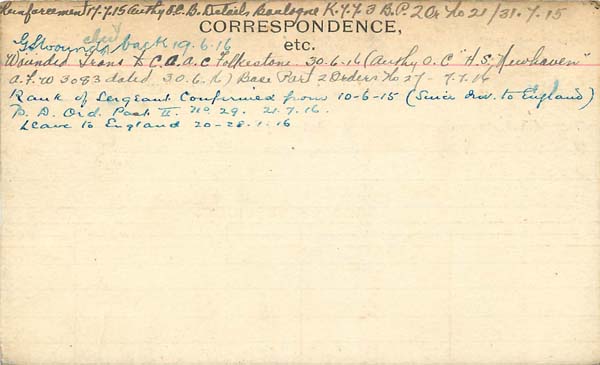 Reinforcement 17.7.15 Authy O.C. B. Details Boulogne K.Y.Y 3 B.P. 2 Or No 21/31.7.15
CORRESPONDENCE,
etc.
GSwounds chest back 19.6.16
Wounded Trans to C.C.A.C Folkestone. 30.6.16 (Authy O.C "H.S. Newhaven"
A.F.W 3083 dated 30.6.16) Base Part 2 Orders No 27 - 7.7.16
Rank of Sergeant Confirmed from 10-6-15 (Since Arr. to England)
P. D. Ord. Part II. No. 29. 21.7.16.
Leave to England 20-28.1.16